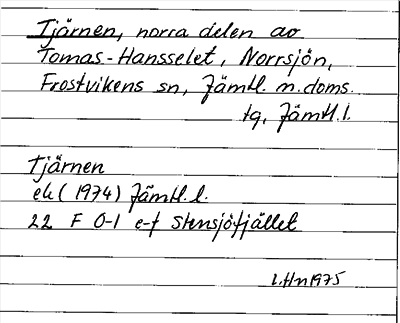 Tjärnen, norra delen av
Tomas-Hansselet, Norrsjön,
Frostvikens sn, Jämtl. n. doms.
tg, Jämtl. l.
Tjärnen
ek (1974) Jämtl. l.
22 F 0-1 e-f Stensjöfjället
L.Hn 1975